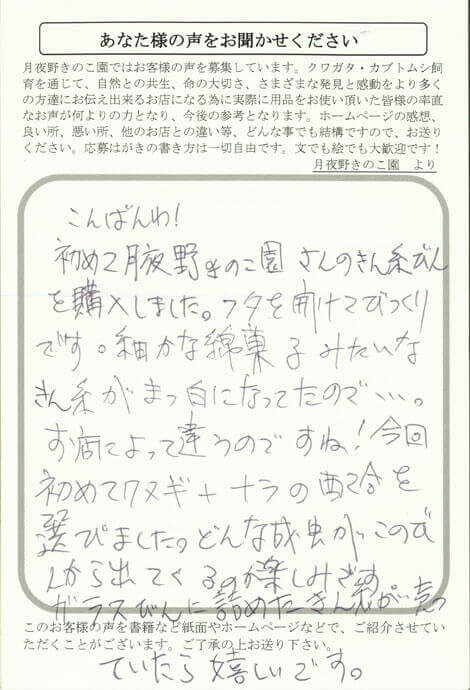 あなた様の声をお聞かせください
月夜野きのこ園ではお客様の声を募集しています。クワガタ・カブトムシ飼
育を通じて、自然との共生、命の大切さ、さまざまな発見と感動をより多く
の方達にお伝え出来るお店になる為に実際に用品をお使い頂いた皆様の率直
なお声が何よりの力となり、今後の参考となります。ホームページの感想、
良い所、悪い所、他のお店との違い等、どんな事でも結構ですので、お送り
ください。応募はがきの書き方は一切自由です。文でも絵でも大歓迎です！
月夜野きのこ園　より
こんばんわ!
初めて月夜野きのこ園さんのきん糸びん
を購入しました。フタを開けてびっくり
です。細かな綿菓子みたいな
きん糸がまっ白になってたので…。
お店によって違うのですね!今回
初めてクヌギ+ナラの配合を
選びました。どんな成虫がこのび
んから出てくるのか楽しみです
ガラスびんに詰めたきん糸が
このお客様の声を書籍など紙面やホームページなどで、ご紹介させてい
ただくことがございます。ご了承の上お送り下さい。
ていたら嬉しいです。